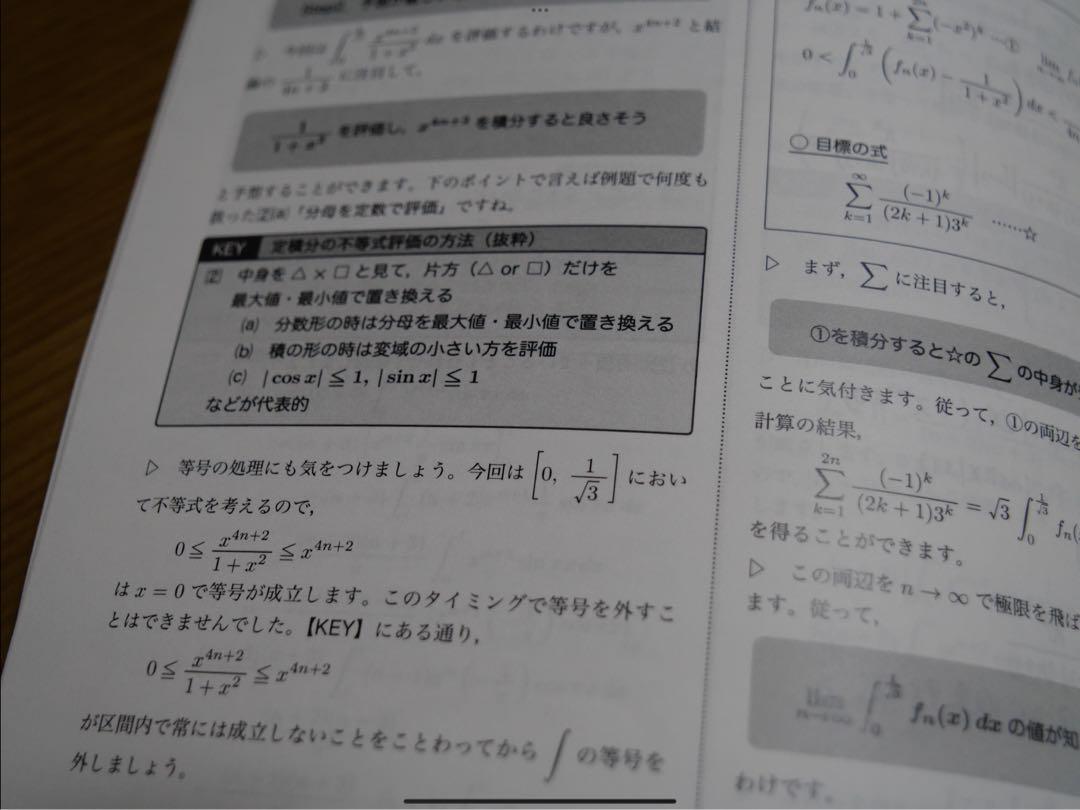 ▷ 今回は $\int_0^{\frac{1}{\sqrt{3}}} \frac{x^{4n+2}}{1+x^2} dx$ を評価するわけですが，$x^{4n+2}$ と結
論の $\frac{1}{4n+3}$ に注目して，
$\frac{1}{1+x^2}$ を評価し，$x^{4n+2}$ を積分すると良さそう
と予想することができます。下のポイントで言えば例題で何度も
扱った②(a)「分母を定数で評価」ですね。
KEY 定積分の不等式評価の方法（抜粋）
② 中身を △ × □ と見て，片方（△ or □）だけを
最大値・最小値で置き換える
(a) 分数形の時は分母を最大値・最小値で置き換える
(b) 積の形の時は変域の小さい方を評価
(c) $|\cos x| \leqq 1, |\sin x| \leqq 1$
などが代表的
▷ 等号の処理にも気をつけましょう。今回は $\left[0, \frac{1}{\sqrt{3}}\right]$ におい
て不等式を考えるので，
$0 \leqq \frac{x^{4n+2}}{1+x^2} \leqq x^{4n+2}$
は $x = 0$ で等号が成立します。このタイミングで等号を外すこ
とはできませんでした。【KEY】にある通り，
$0 \leqq \frac{x^{4n+2}}{1+x^2} \leqq x^{4n+2}$
が区間内で常には成立しないことをことわってから $\int$ の等号を
外しましょう。
$f_n(x) = 1 + \sum_{k=1}^{2n} (-x^2)^k$ …①
$0 < \int_0^{\frac{1}{\sqrt{3}}} \left( f_n(x) - \frac{1}{1+x^2} \right) dx <$
○ 目標の式
$\sum_{k=1}^{\infty} \frac{(-1)^k}{(2k+1)3^k}$ ……☆
▷ まず，$\sum$ に注目すると，
①を積分すると☆の $\sum$ の中身が
ことに気付きます。従って，①の両辺を
計算の結果，
$\sum_{k=1}^{2n} \frac{(-1)^k}{(2k+1)3^k} = \sqrt{3} \int_0^{\frac{1}{\sqrt{3}}} f_n($
を得ることができます。
▷ この両辺を $n \to \infty$ で極限を飛ば
ます。従って，
$\lim_{n \to \infty} \int_0^{\frac{1}{\sqrt{3}}} f_n(x) dx$ の値が知
わけです。